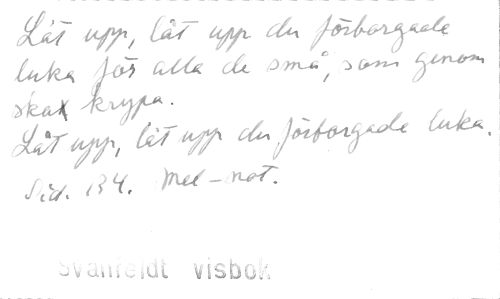 Låt upp, låt upp du förborgade
luka för alla de små, som genom
skax krypa.
Låt upp, låt upp du förborgade luka.
Sid. 134. Mel-not.
Svanfeldt visbok